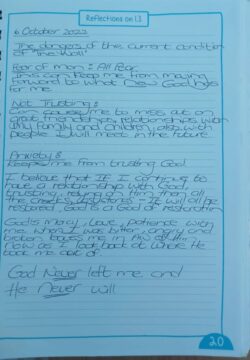 Reflections on L3
6 October 2022
The dangers of the current condition
of "The Wall"
Fear of man : All Fear.
This can keep me from moving
forward to what New God has
for me.
Not Trusting :
Can cause me to miss out on
great friendships, relationships with
My family and children, also with
people I will meet in the future
Anxiety :
Keeps me from trusting God.
I believe that if I continue to
have a relationship with God,
trusting, relying on Him, then all
the cracks, - It will all be
restored, God is a God of restoration
God's Mercy, Love, patience with
me, when I was bitter, angry and
broken leaves me in Aw of Him.
Now as I look back at where He
took me out of.
God Never left me and
He never will
20